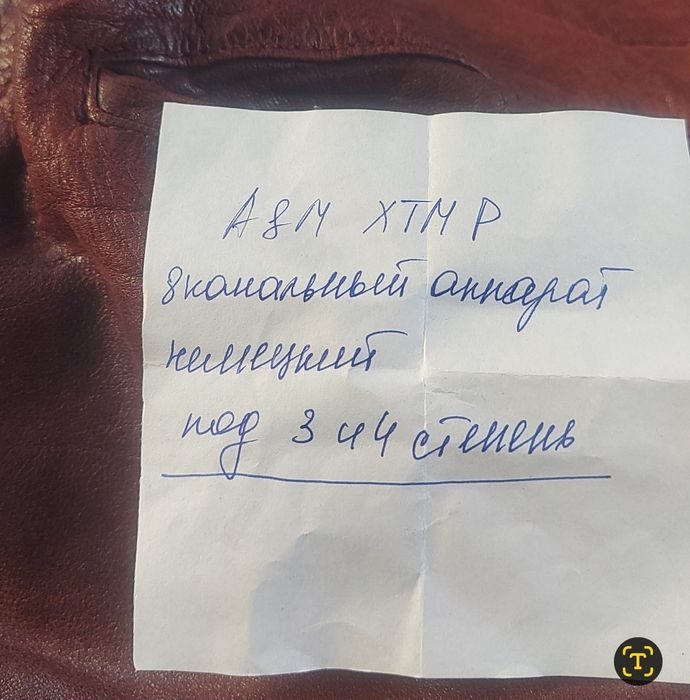 A&M XTM P
8канальный аппарат
немецкий
под 3 и 4 степень